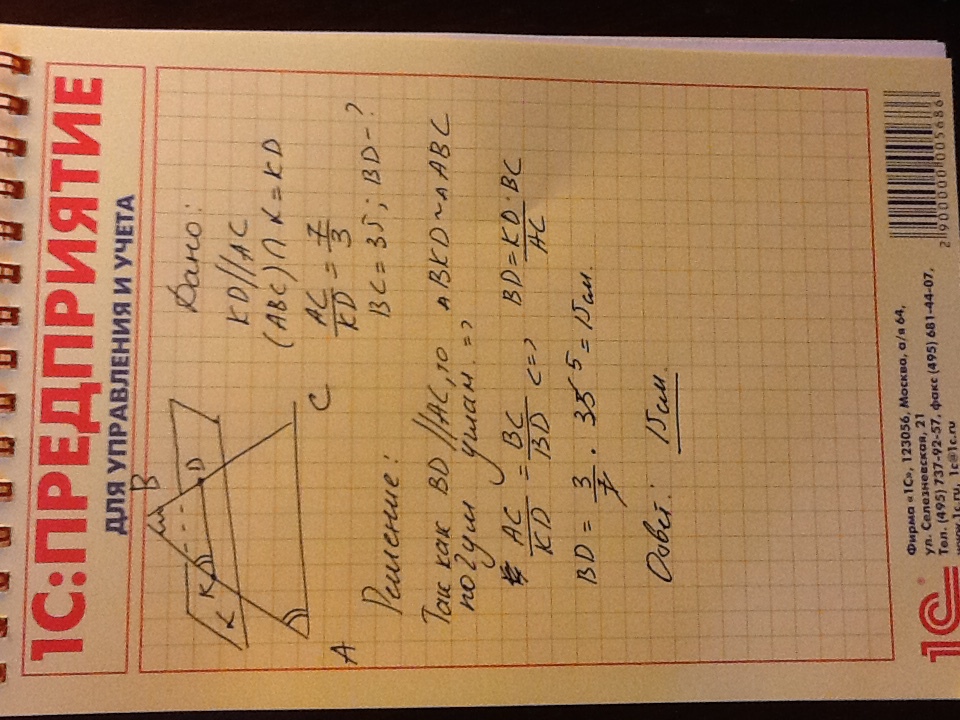 1С:ПРЕДПРИЯТИЕ
ДЛЯ УПРАВЛЕНИЯ И УЧЕТА
B
K
K
D
A
C
Дано:
KD//AC
(ABC)∩K=KD
AC/KD=7/3
BC=35; BD-?
Решение:
Так как BD//AC, то ΔBKD~ΔABC
по 2ум углам. =>
AC/KD = BC/BD <=> BD = KD·BC/AC
BD = 3/7 · 35 5 = 15 см.
Ответ: 15 см.
2 900000 005686
Фирма «1С», 123056, Москва, а/я 64,
ул. Селезневская, 21
Тел. (495) 737-92-57, факс (495) 681-44-07,
www.1c.ru, 1c@1c.ru
1С®